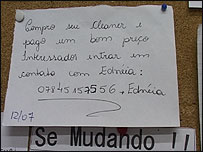 Compro seu Cleaner e
pago um bom preço
Interessados entrar em
contato com Ednéia:
07845157556 → Ednéia
12/07
Se Mudando !!